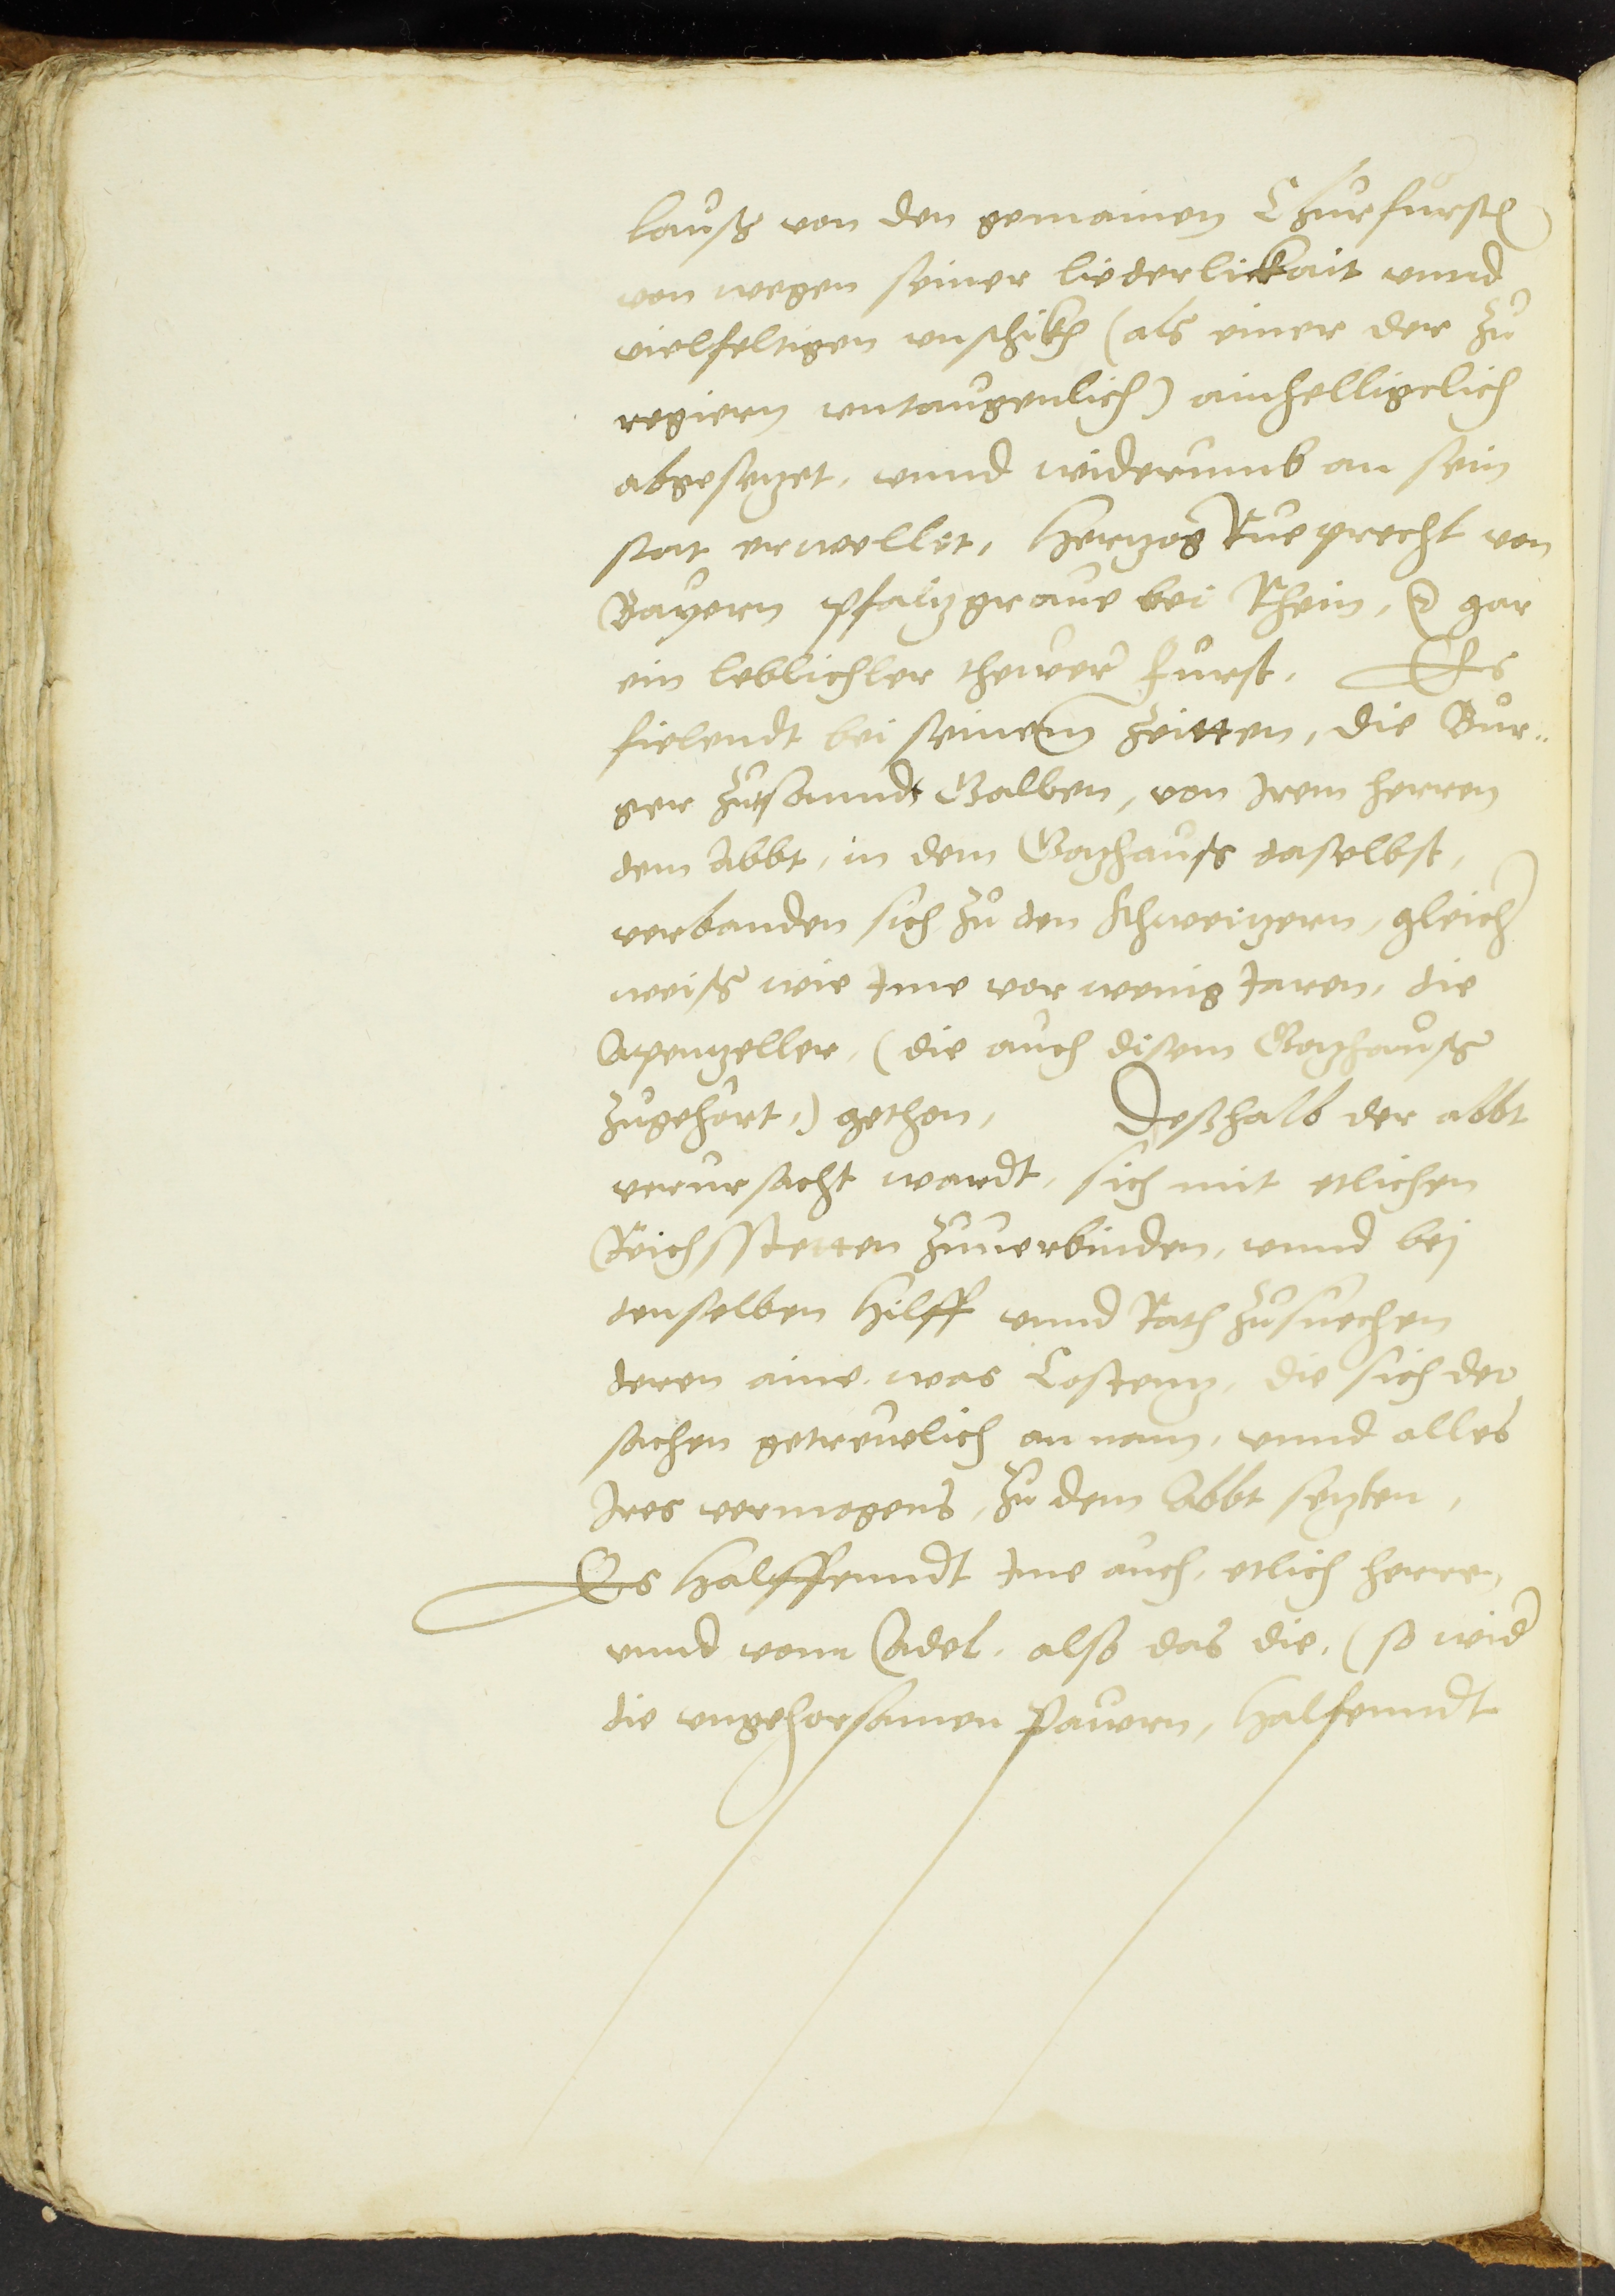 lauß von den gemainen Churfurst
von wegen seiner liederlickait vnnd
vielfeltigen vnschikh (als einer der zu
regiern vntaugenlich) ainhelligclich
abgesetzet, vnnd widerumb an sein
stat erwellet, Hertzog Rueprecht von
Bayern pfaltzgraue bei Rhein, gar
ein leblichler thewer furst. Es
fielendt bei seinem zeitten, die Bur¬
ger zu sanndt Gallen, von Jrem herren
dem Abbt, in dem Gotzhauß daselbst,
verbanden sich zu den Schweitzern, gleich
weiß wie Jme vor wenig Jaren, die
Apentzeller, (die auch disem Gotzhauß
zugehort,) gethon, Deßhalb der abbt
verursacht wardt, sich mit etlichen
Reichsstetten zuuerbinden, vnnd bej
denselben Hilff vnnd Rath zusuechen
deren aine was Costentz, die sich der
sachen getreuelich an nam, vnnd alles
Jres vermogens, zu dem Abbt setzten,
Es Halffenndt Jme auch, etlich herren,
vnnd vom Adel, also das die, (so wid
die vngehorsamen Pauern, Halfenndt